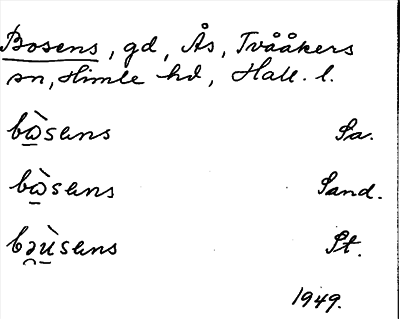 Bosens, gd, Ås, Tvååkers
sn, Himle hd, Hall. l.
bὼsens Sa.
bὼsens Sand.
bə̯ù̱sens St.
1949.